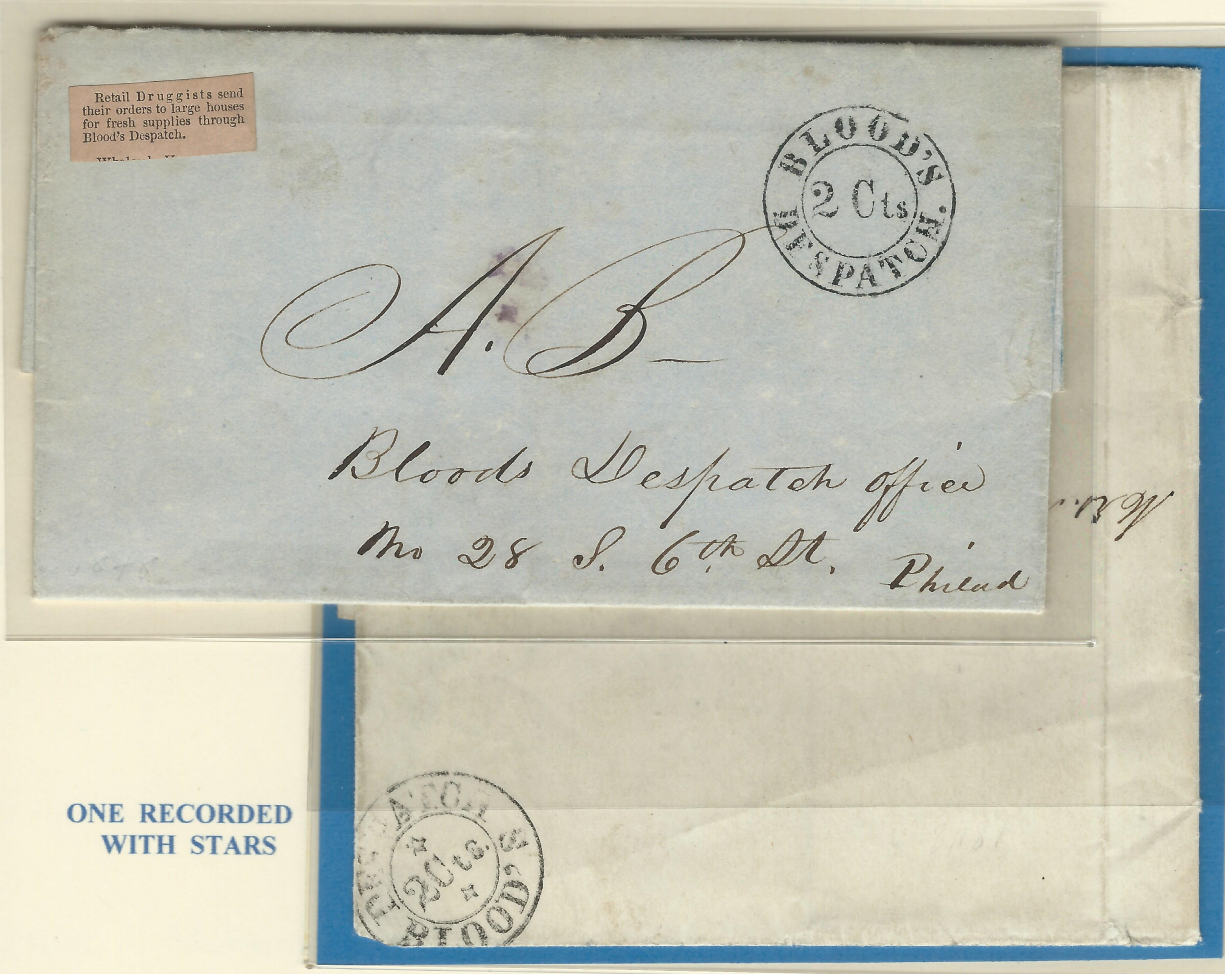 Retail Druggists send
their orders to large houses
for fresh supplies through
Blood's Despatch.
BLOOD'S
2 Cts
DESPATCH.
A. B
Bloods Despatch office
No 28 S. 6th St. Philad
ONE RECORDED
WITH STARS
DESPATCH
2 Cts.
BLOOD'S